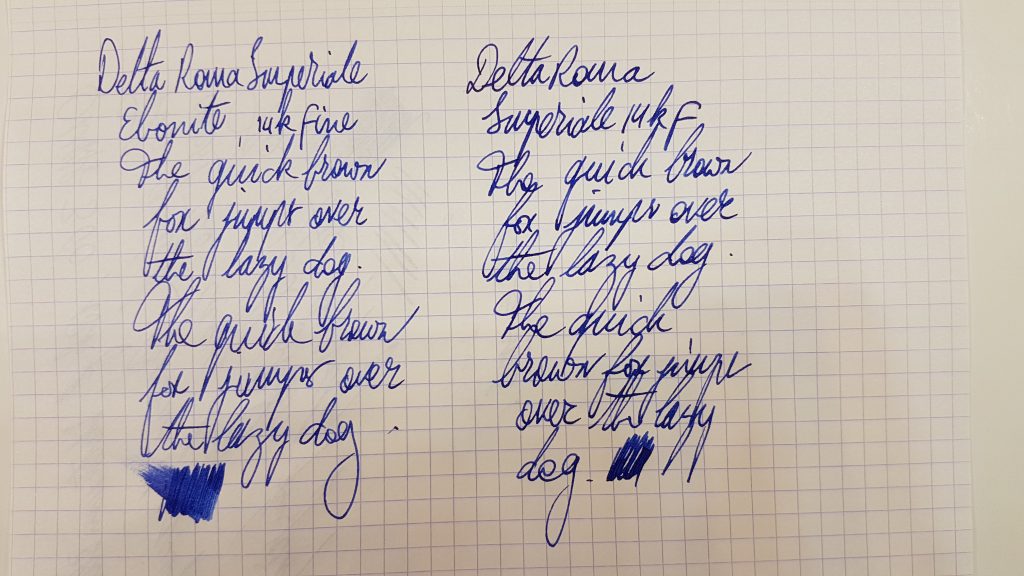 Delta Roma Imperiale
Ebonite, 14k Fine
The quick brown
fox jumps over
the lazy dog.
The quick brown
fox jumps over
the lazy dog.
Delta Roma
Imperiale 14k F
The quick brown
fox jumps over
the lazy dog.
The quick
brown fox jumps
over the lazy
dog.